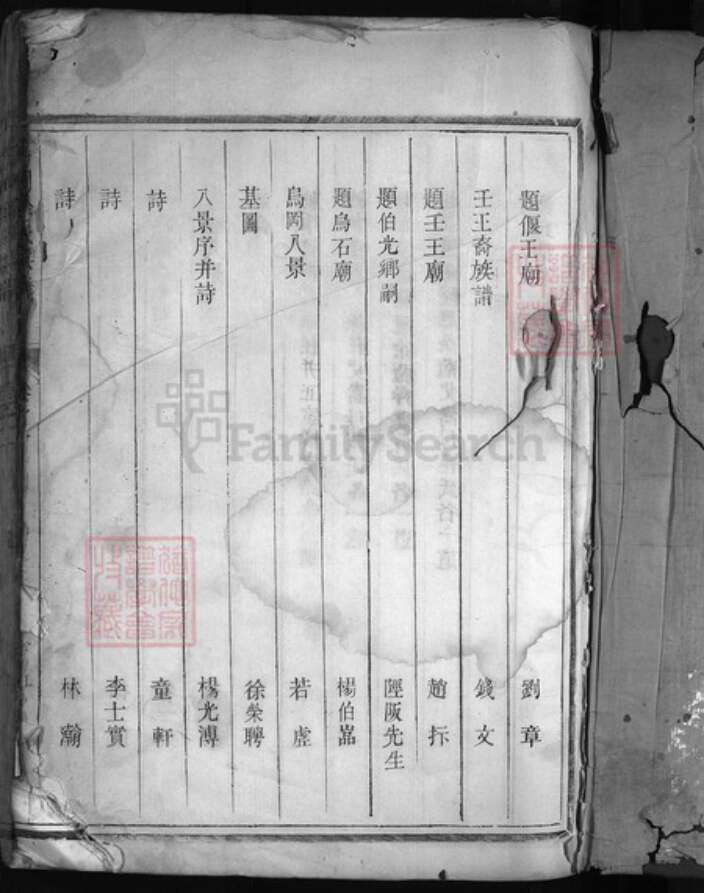 題偃王廟 劉章
壬王裔族譜 錢文
題壬王廟 趙抃
題伯尤鄉嗣 陘阪先生
題烏石廟 楊伯嵓
烏岡八景 若虛
基圖 徐榮聘
八景序并詩 楊光溥
詩 童軒
詩 李士實
詩 林瀚
FamilySearch